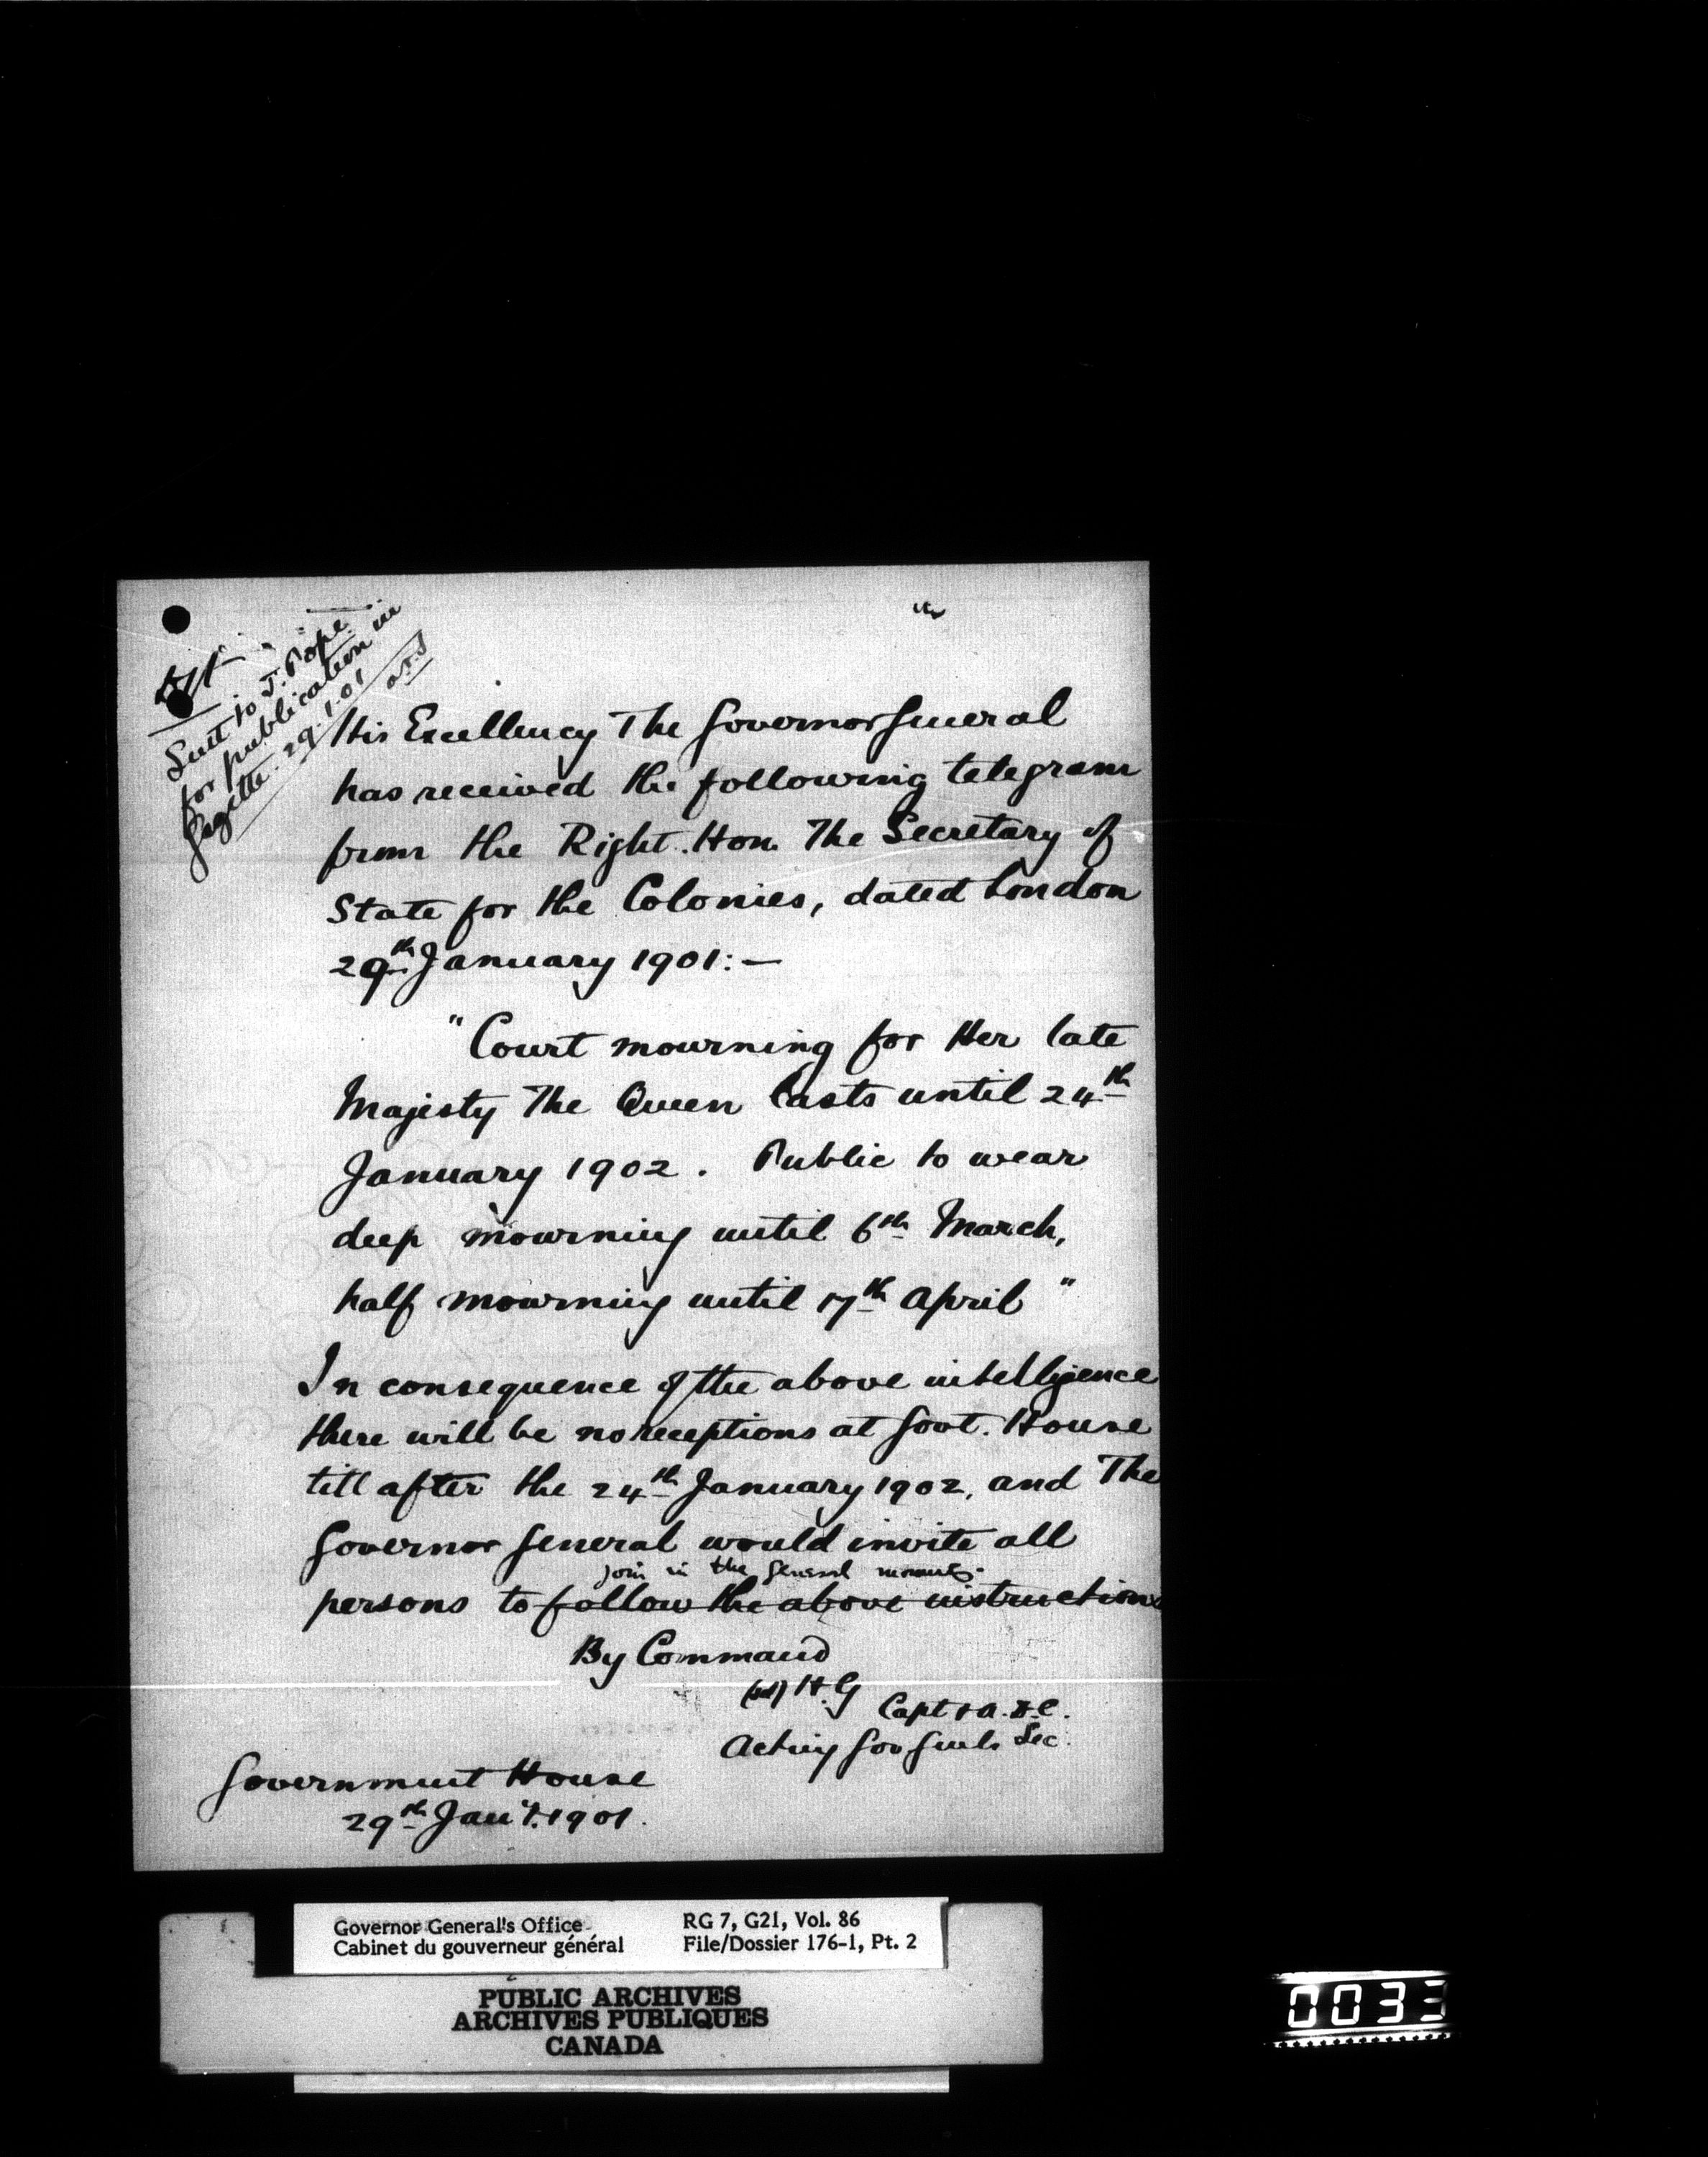 Sent to J. Pope
for publication in
Gazette. 29.1.01
His Excellency The Governor General
has received the following telegram
from the Right. Hon. The Secretary of
State for the Colonies, dated London
29th January 1901:—
"Court mourning for Her late
Majesty The Queen lasts until 24th
January 1902. Public to wear
deep mourning until 6th March,
half mourning until 17th April"
In consequence of the above intelligence
there will be no receptions at Govt. House
till after the 24th January 1902, and The
Governor General would invite all
join in the general mourning.
persons to follow the above instructions
By Command
(sd) H.G Capt & A.D.C.
Acting Gov Genls Sec.
Government House
29th Jan'y. 1901.
Governor General's Office
Cabinet du gouverneur général
RG 7, G21, Vol. 86
File/Dossier 176-1, Pt. 2
PUBLIC ARCHIVES
ARCHIVES PUBLIQUES
CANADA
0033